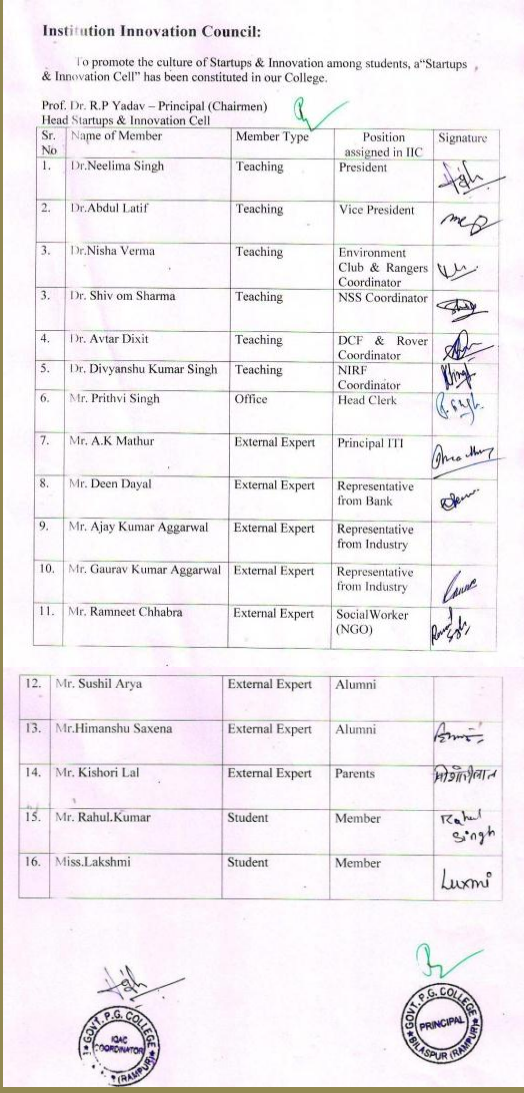 Institution Innovation Council:
To promote the culture of Startups & Innovation among students, a“Startups
& Innovation Cell” has been constituted in our College.
Prof. Dr. R.P Yadav – Principal (Chairmen)
Head Startups & Innovation Cell
Sr. No Name of Member Member Type Position assigned in IIC Signature
1. Dr.Neelima Singh Teaching President
2. Dr.Abdul Latif Teaching Vice President
3. Dr.Nisha Verma Teaching Environment
Club & Rangers
Coordinator
3. Dr. Shiv om Sharma Teaching NSS Coordinator
4. Dr. Avtar Dixit Teaching DCF & Rover
Coordinator
5. Dr. Divyanshu Kumar Singh Teaching NIRF
Coordinator
6. Mr. Prithvi Singh Office Head Clerk
7. Mr. A.K Mathur External Expert Principal ITI
8. Mr. Deen Dayal External Expert Representative
from Bank
9. Mr. Ajay Kumar Aggarwal External Expert Representative
from Industry
10. Mr. Gaurav Kumar Aggarwal External Expert Representative
from Industry
11. Mr. Ramneet Chhabra External Expert SocialWorker
(NGO)
12. Mr. Sushil Arya External Expert Alumni
13. Mr.Himanshu Saxena External Expert Alumni
14. Mr. Kishori Lal External Expert Parents
15. Mr. Rahul.Kumar Student Member Rahul
Singh
16. Miss.Lakshmi Student Member Luxmi
GOVT. P.G. COLLEGE
IQAC
COORDINATOR
(RAMPUR)
GOVT. P.G. COLLEGE
PRINCIPAL
BILASPUR (RAMPUR)